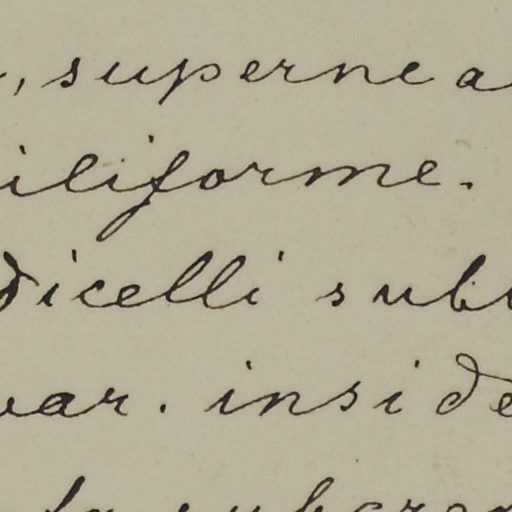 , superne a
iliforme.
dicelli sub
var. inside